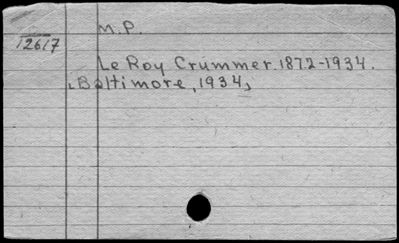 M.P.
12617
Le Roy Crummer. 1872-1934.
Baltimore, 1934,